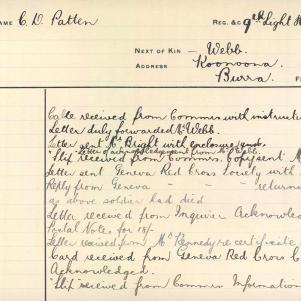 NAME C. D. Patten REG. &C 9th Light H
NEXT OF KIN - Webb.
ADDRESS Koonoona,
Burra.
Cable received from Commrs with instructi
Letter duly forwarded Mr Webb.
Letter sent Mr Bright with enclosure
"Letter of acknowledgement from Mr Webb.
Slip received from Commrs. Copy sent M
Letter sent Geneva Red Cross Society with
Reply from Geneva - - - returni
as above soldier had died
Letter received from Inquirer Acknowled
Postal Notes for 18/-
Letter received from Mrs Kennedy re certificate
Card received from Geneva Red Cross C
Acknowledged.
Slip received from Commrs Information